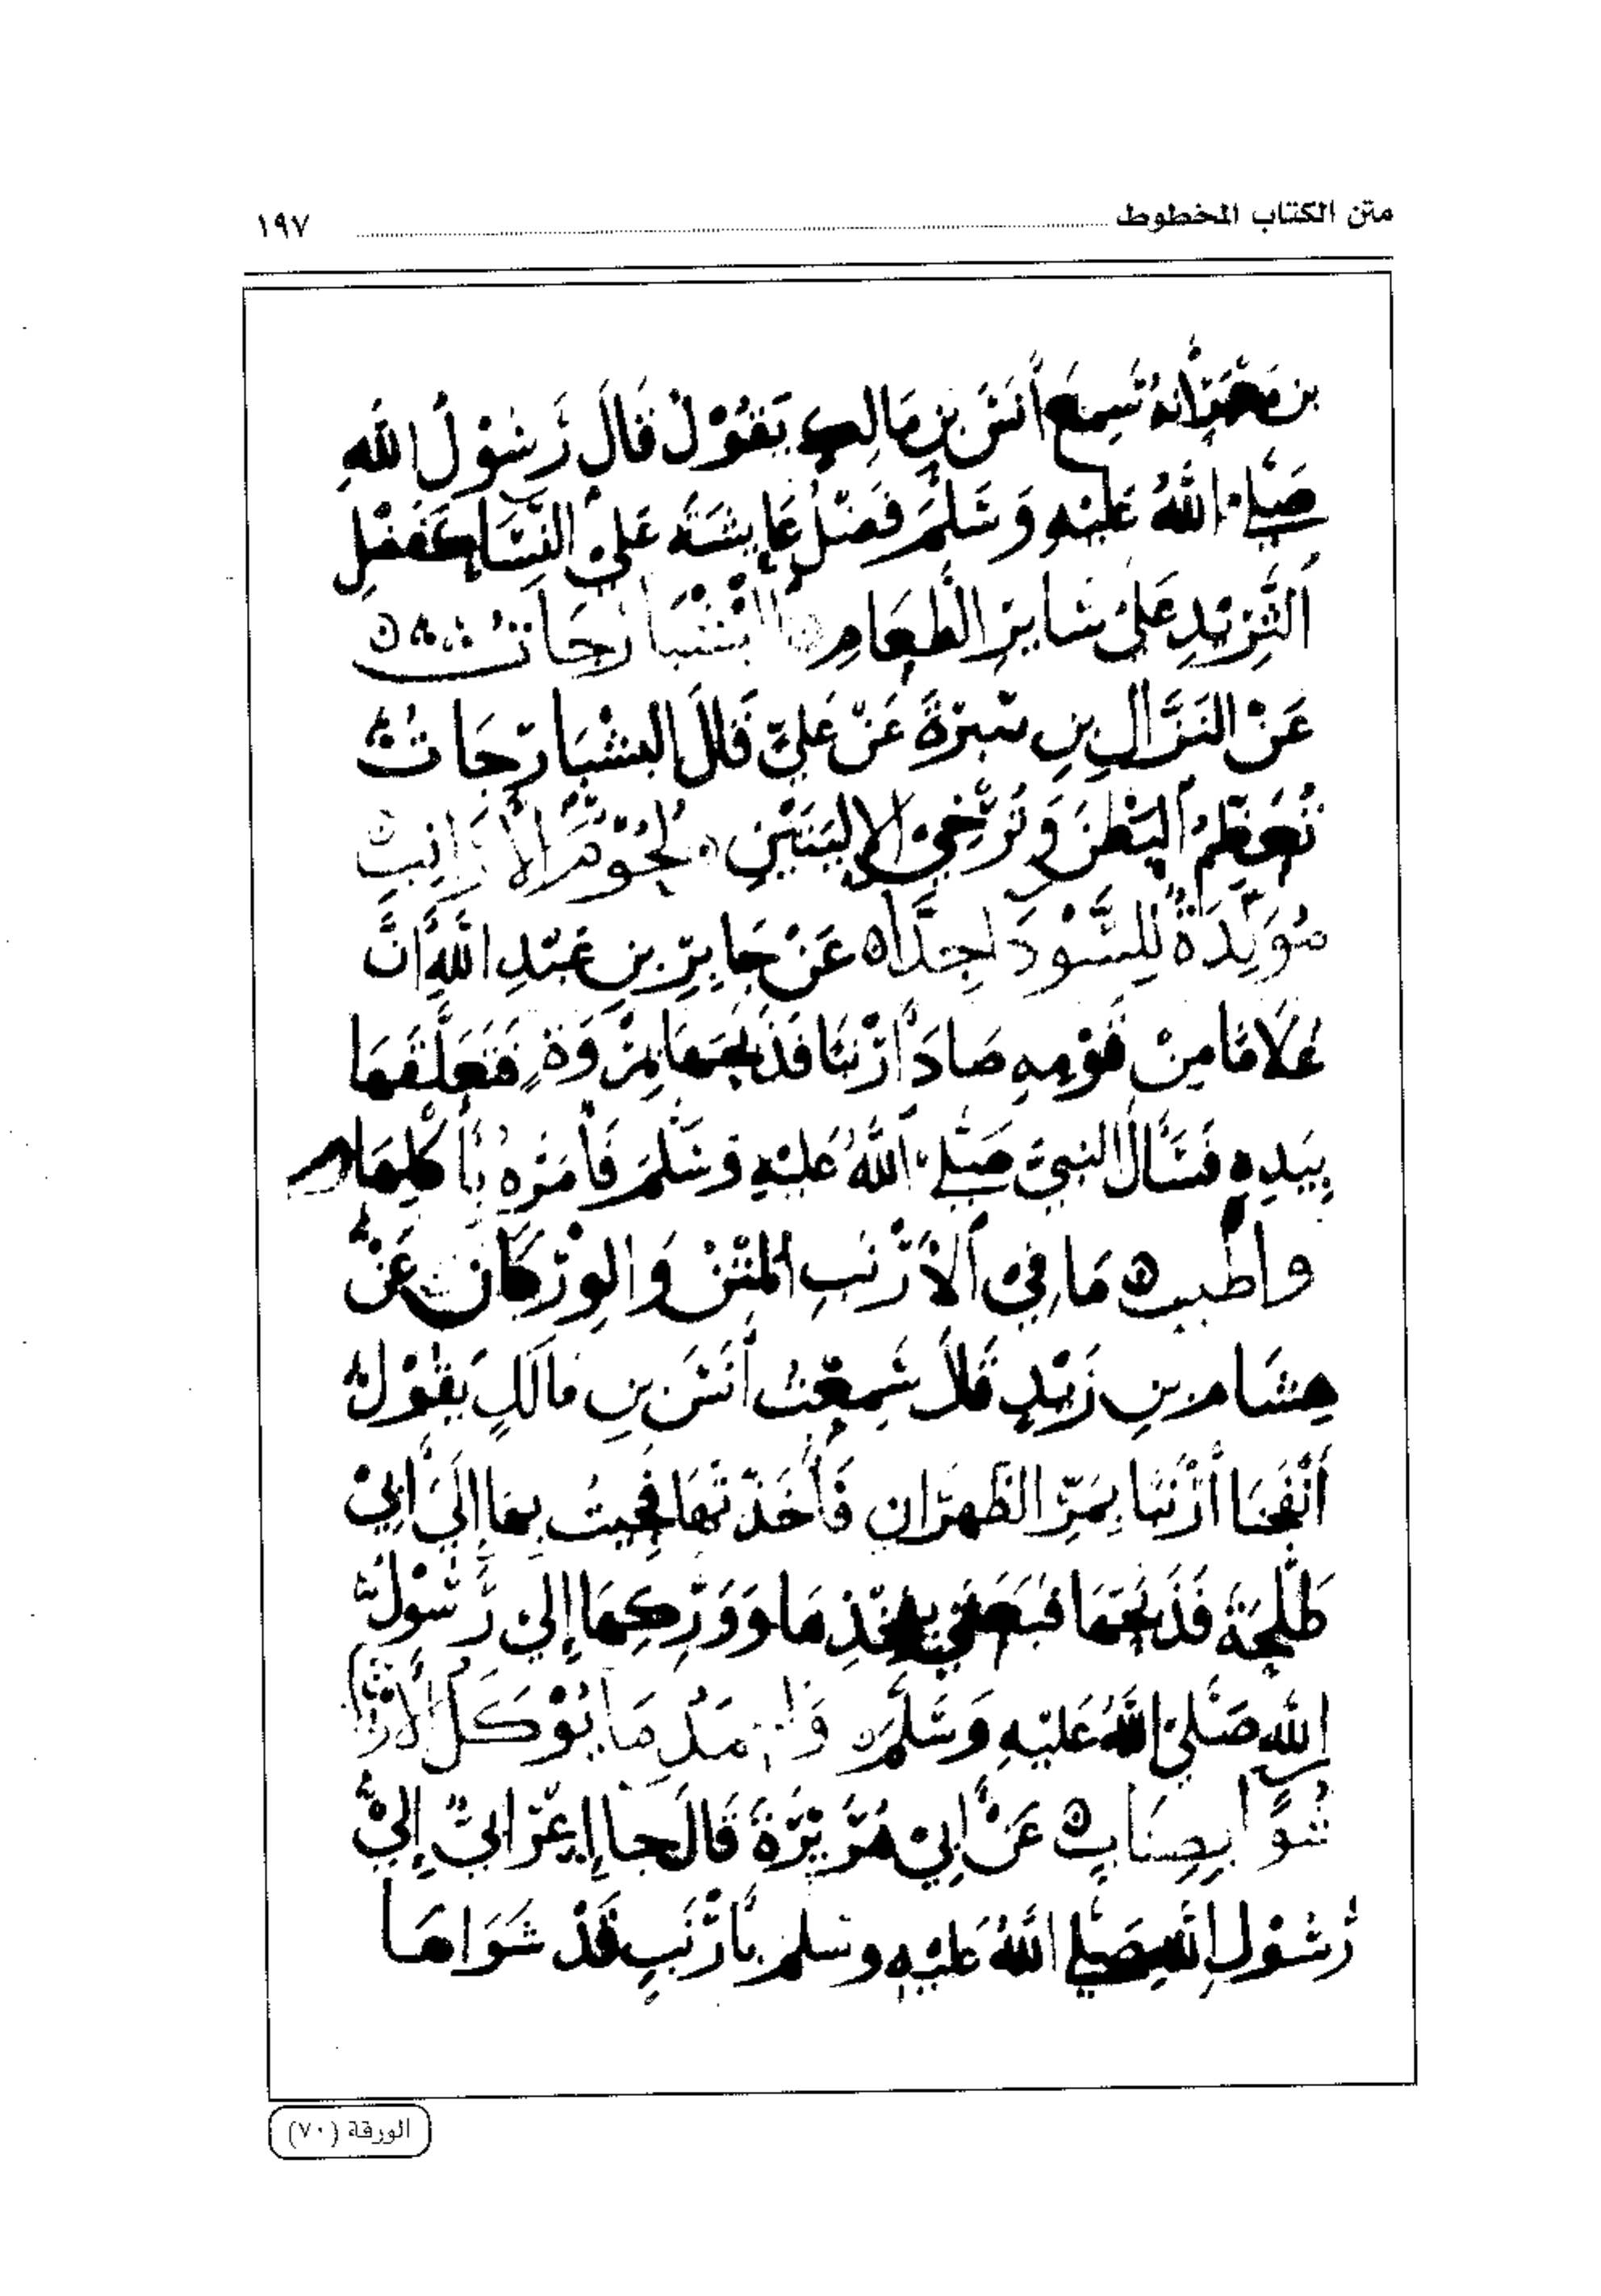 متن الكتاب المخطوط ١٩٧
بن مَعْمَرٍ أنهُ سَمِعَ أنَسَ بنِ مَالِكٍ يَقُوْلُ قَالَ رَسُوْلُ اللهِ
صَلى اللهُ عَليْهِ وَسَلمَ فَضْلُ عَايشَةَ عَلىْ النِّسَا كَفَضْلِ
الثَّرِيْدِ عَلىْ سَايرِ الطَّعَامِ ه البَشْبَارجَاتُ ه
عَنْ النَزَّالِ بنِ سَبرْةَ عَنْ عَليّ قَالَ البشْبَارجَاتُ
تُعَظِّمُ البَطْنَ وَتُرْخِيْ الإِليَتَيْنِ ه لحُوْمُ الأَرَانِبِ
مُوَلِّدَةٌ لِلسَّوْدَا جِدَّا ه عَنْ جَابِرِ بنِ عَبْدِ اللهِ أَنَّ
غُلاَمًا مِنْ قَوْمِهِ صَادَ أَرْنبًا فَذَبحَهَا بمَرْوَةٍ فَتَعَلَّقَهَا
بِيَدِهِ فَسَأَلَ النبيَّ صَلى اللهُ عَليْهِ وَسَلمَ فَأمَرَهُ بأَكْلِهَا
واطيب ه مَا فيْ الأَرْنَبِ المَتْنُ وَالوِرْكَانِ عَنْ
هِشَام بنِ زَيْدٍ قَالَ سَمِعْتُ أنَسَ بنِ مَالكٍ يَقُوْلُ
أنْفَجْنَا أرْنَبًا بِمَرِّ الظَهرَانِ فَأَخَذْتُهَا فجِيتُ بهَا إِلىَ أَبيْ
طَلْحَةَ فَذَبحَهَا فبَعَثَنيْ بفَخْذِهَا وَوَرِكِهَا إِلىْ رَسُوْلِ
اللهِ صَلىْ اللهُ عَليْهِ وَسَلمَ ه وَاحمَدُ مَا يُوْكَلُ الأَرْنَبُ
شوًا بصِنَابٍ ه عَنْ أَبيْ هُرَيْرَةَ قَالَ جا إِعْرَابيٌّ إِلىْ
رَسُوْلِ اللهِ صَلى اللهُ عَليْهِ وسلم بأَرْنَبٍ قَدْ شَوَاهَا
الورقة (٧٠)